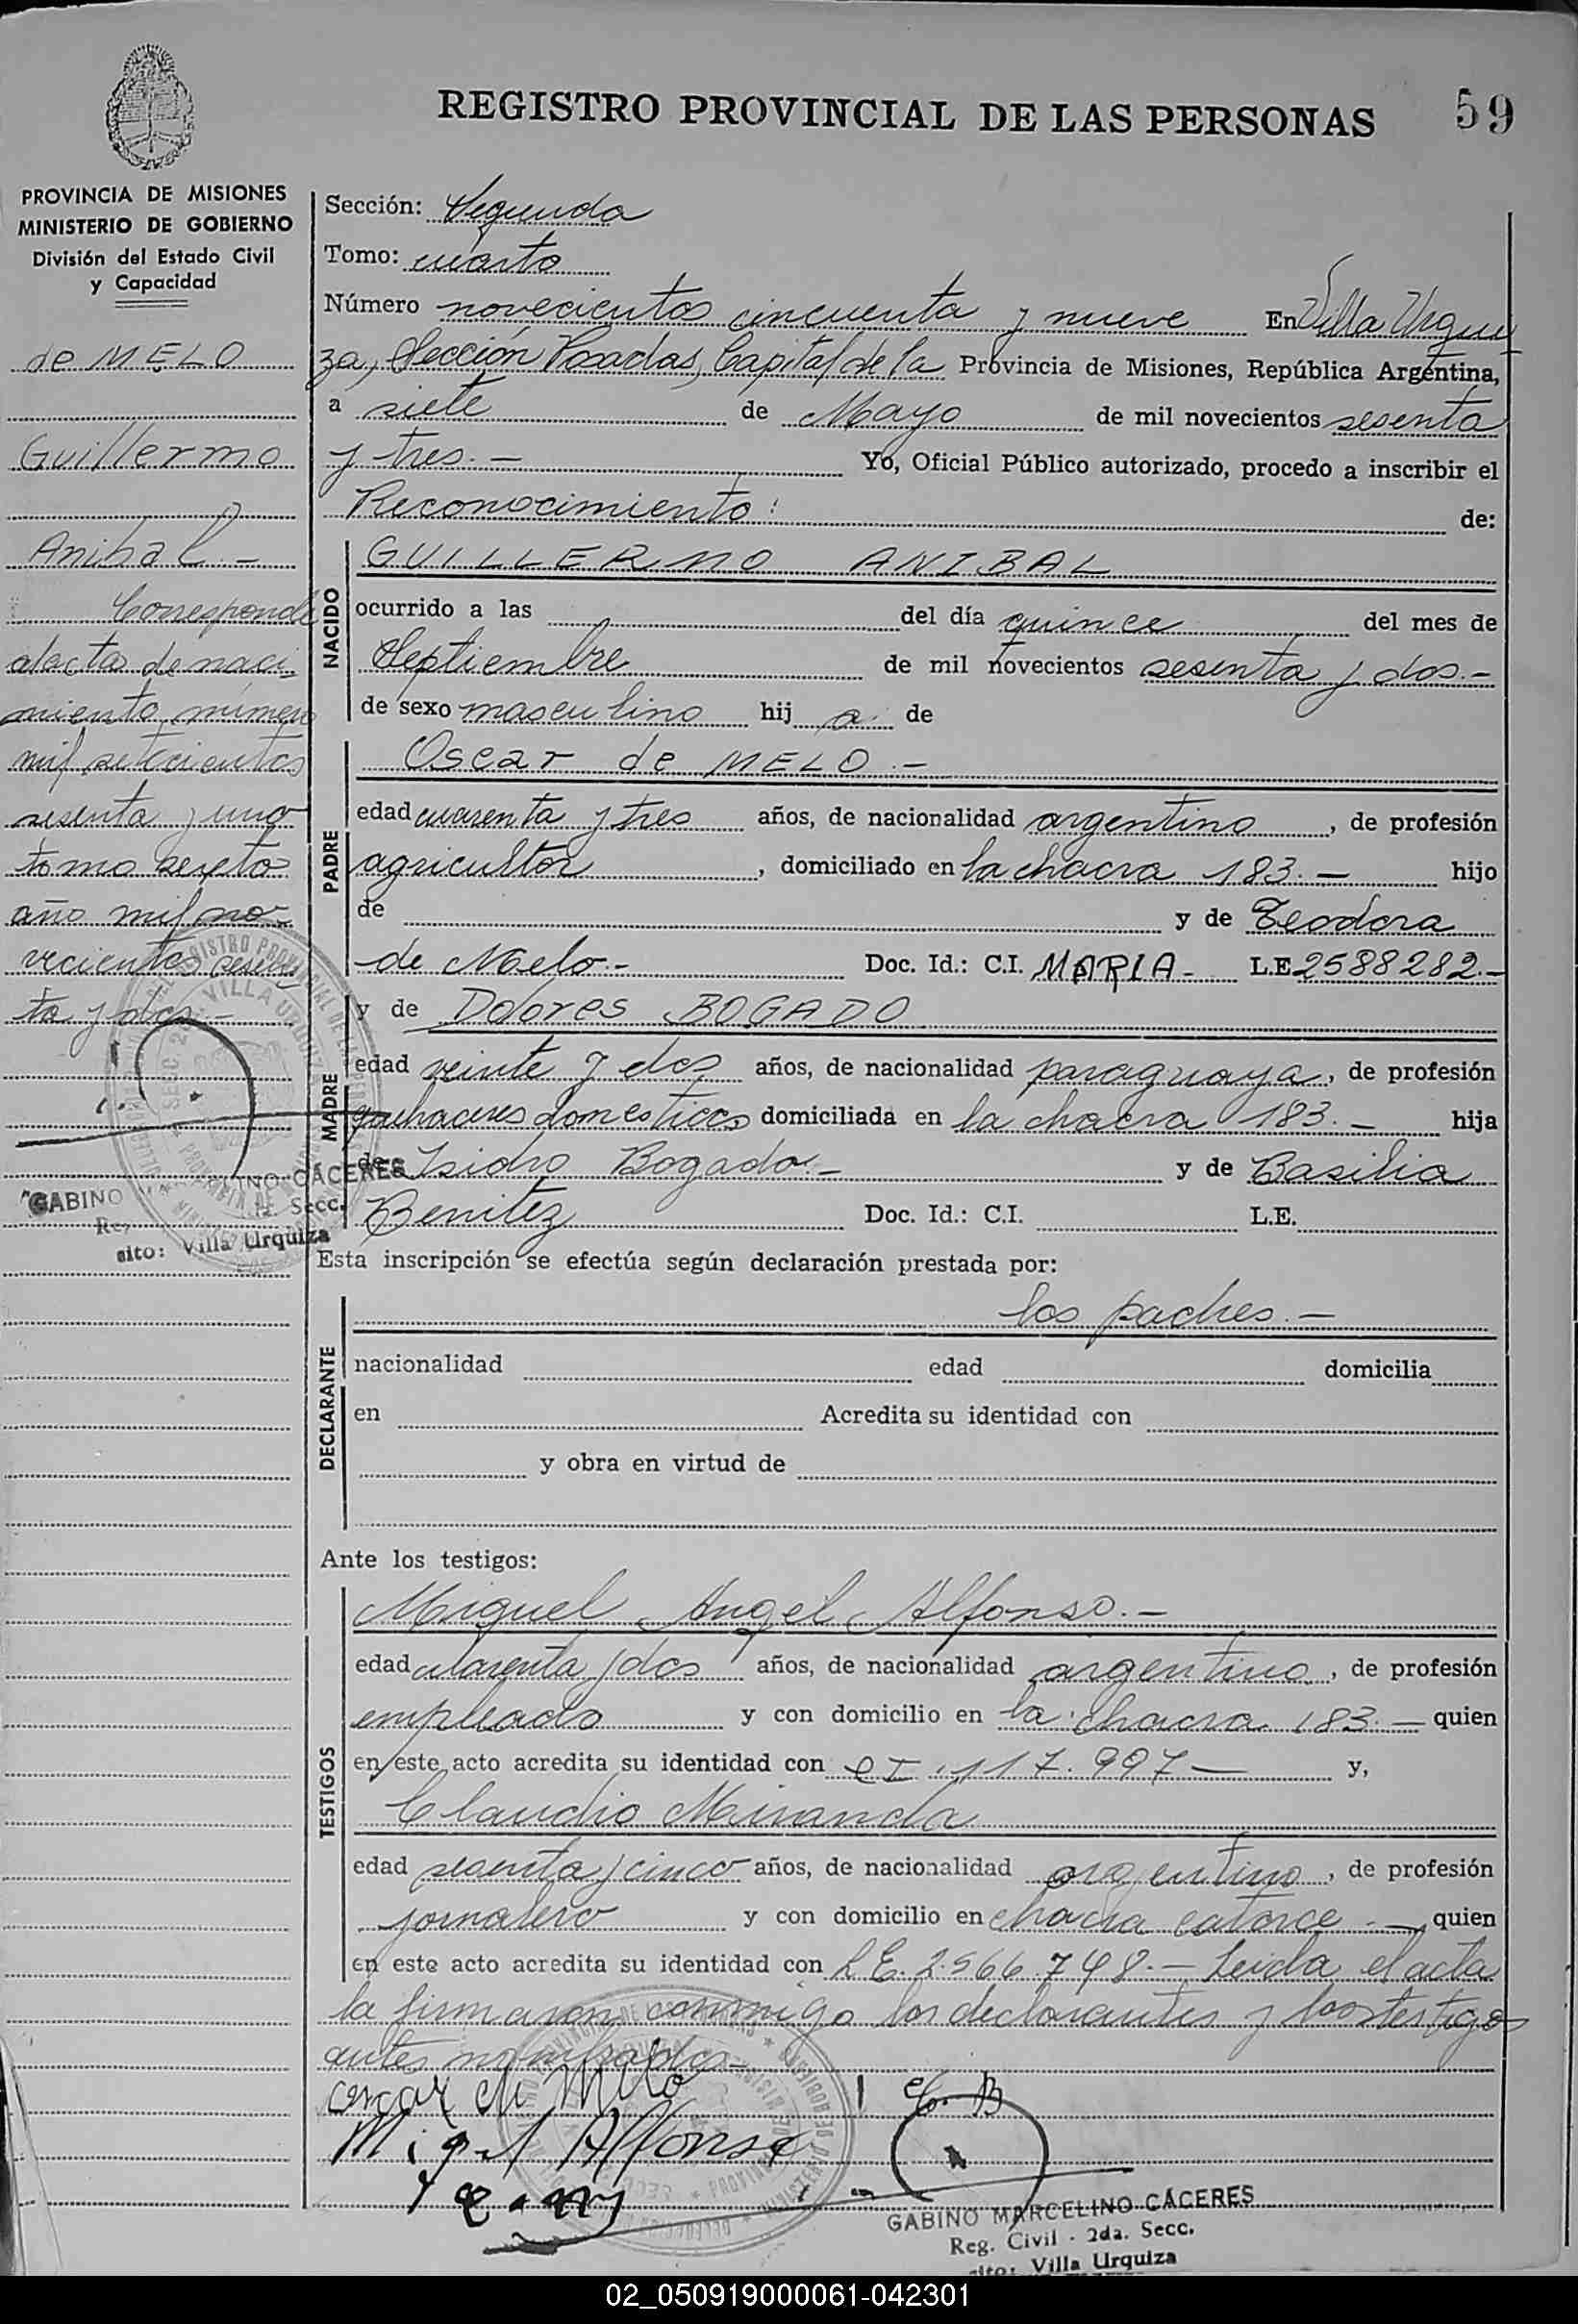 REGISTRO PROVINCIAL DE LAS PERSONAS 59
PROVINCIA DE MISIONES
MINISTERIO DE GOBIERNO
División del Estado Civil
y Capacidad
de MELO
Guillermo
Anibal.-
Corresponde
al acta de naci
miento número
mil setecientos
sesenta y uno
tomo sexto
año mil no-
vecientos sesen
ta y dos.-
GABINO CACERES
Secc.
sito: Villa Urquiza
Sección: Segunda
Tomo: cuarto
Número novecientos cincuenta y nueve En Villa Urqui
za, Sección Posadas, Capital de la Provincia de Misiones, República Argentina,
a siete de Mayo de mil novecientos sesenta
y tres.- Yo, Oficial Público autorizado, procedo a inscribir el
Reconocimiento: de:
NACIDO
GUILLERMO ANIBAL
ocurrido a las del día quince del mes de
Septiembre de mil novecientos sesenta y dos.-
de sexo masculino hij o de
PADRE
Oscar de MELO.-
edad cuarenta y tres años, de nacionalidad argentino, de profesión
agricultor, domiciliado en la chacra 183.- hijo
de y de Teodora
de Melo.- Doc. Id.: C.I. MARIA- L.E. 2588282.-
MADRE
y de Dolores BOGADO
edad veinte y dos años, de nacionalidad paraguaya, de profesión
quehaceres domesticos domiciliada en la chacra 183.- hija
de Isidro Bogado.- y de Basilia
Benitez Doc. Id.: C.I. L.E.
Esta inscripción se efectúa según declaración prestada por:
DECLARANTE
los padres.-
nacionalidad edad domicilia
en Acredita su identidad con
y obra en virtud de
Ante los testigos:
TESTIGOS
Miguel Angel Alfonso.-
edad cuarenta y dos años, de nacionalidad argentino, de profesión
empleado y con domicilio en la chacra 183.- quien
en este acto acredita su identidad con CI. 117.997- y,
Claudio Miranda
edad sesenta y cinco años, de nacionalidad argentino, de profesión
jornalero y con domicilio en chacra catorce.- quien
en este acto acredita su identidad con L.E. 2.566.748.- Leida el acta
la firmaron conmigo los declarantes y los testigos
antes nombrados-
oscar de Melo
Migel Alfonso
GABINO MARCELINO CACERES
Reg. Civil - 2da. Secc.
sito: Villa Urquiza
02_050919000061-042301